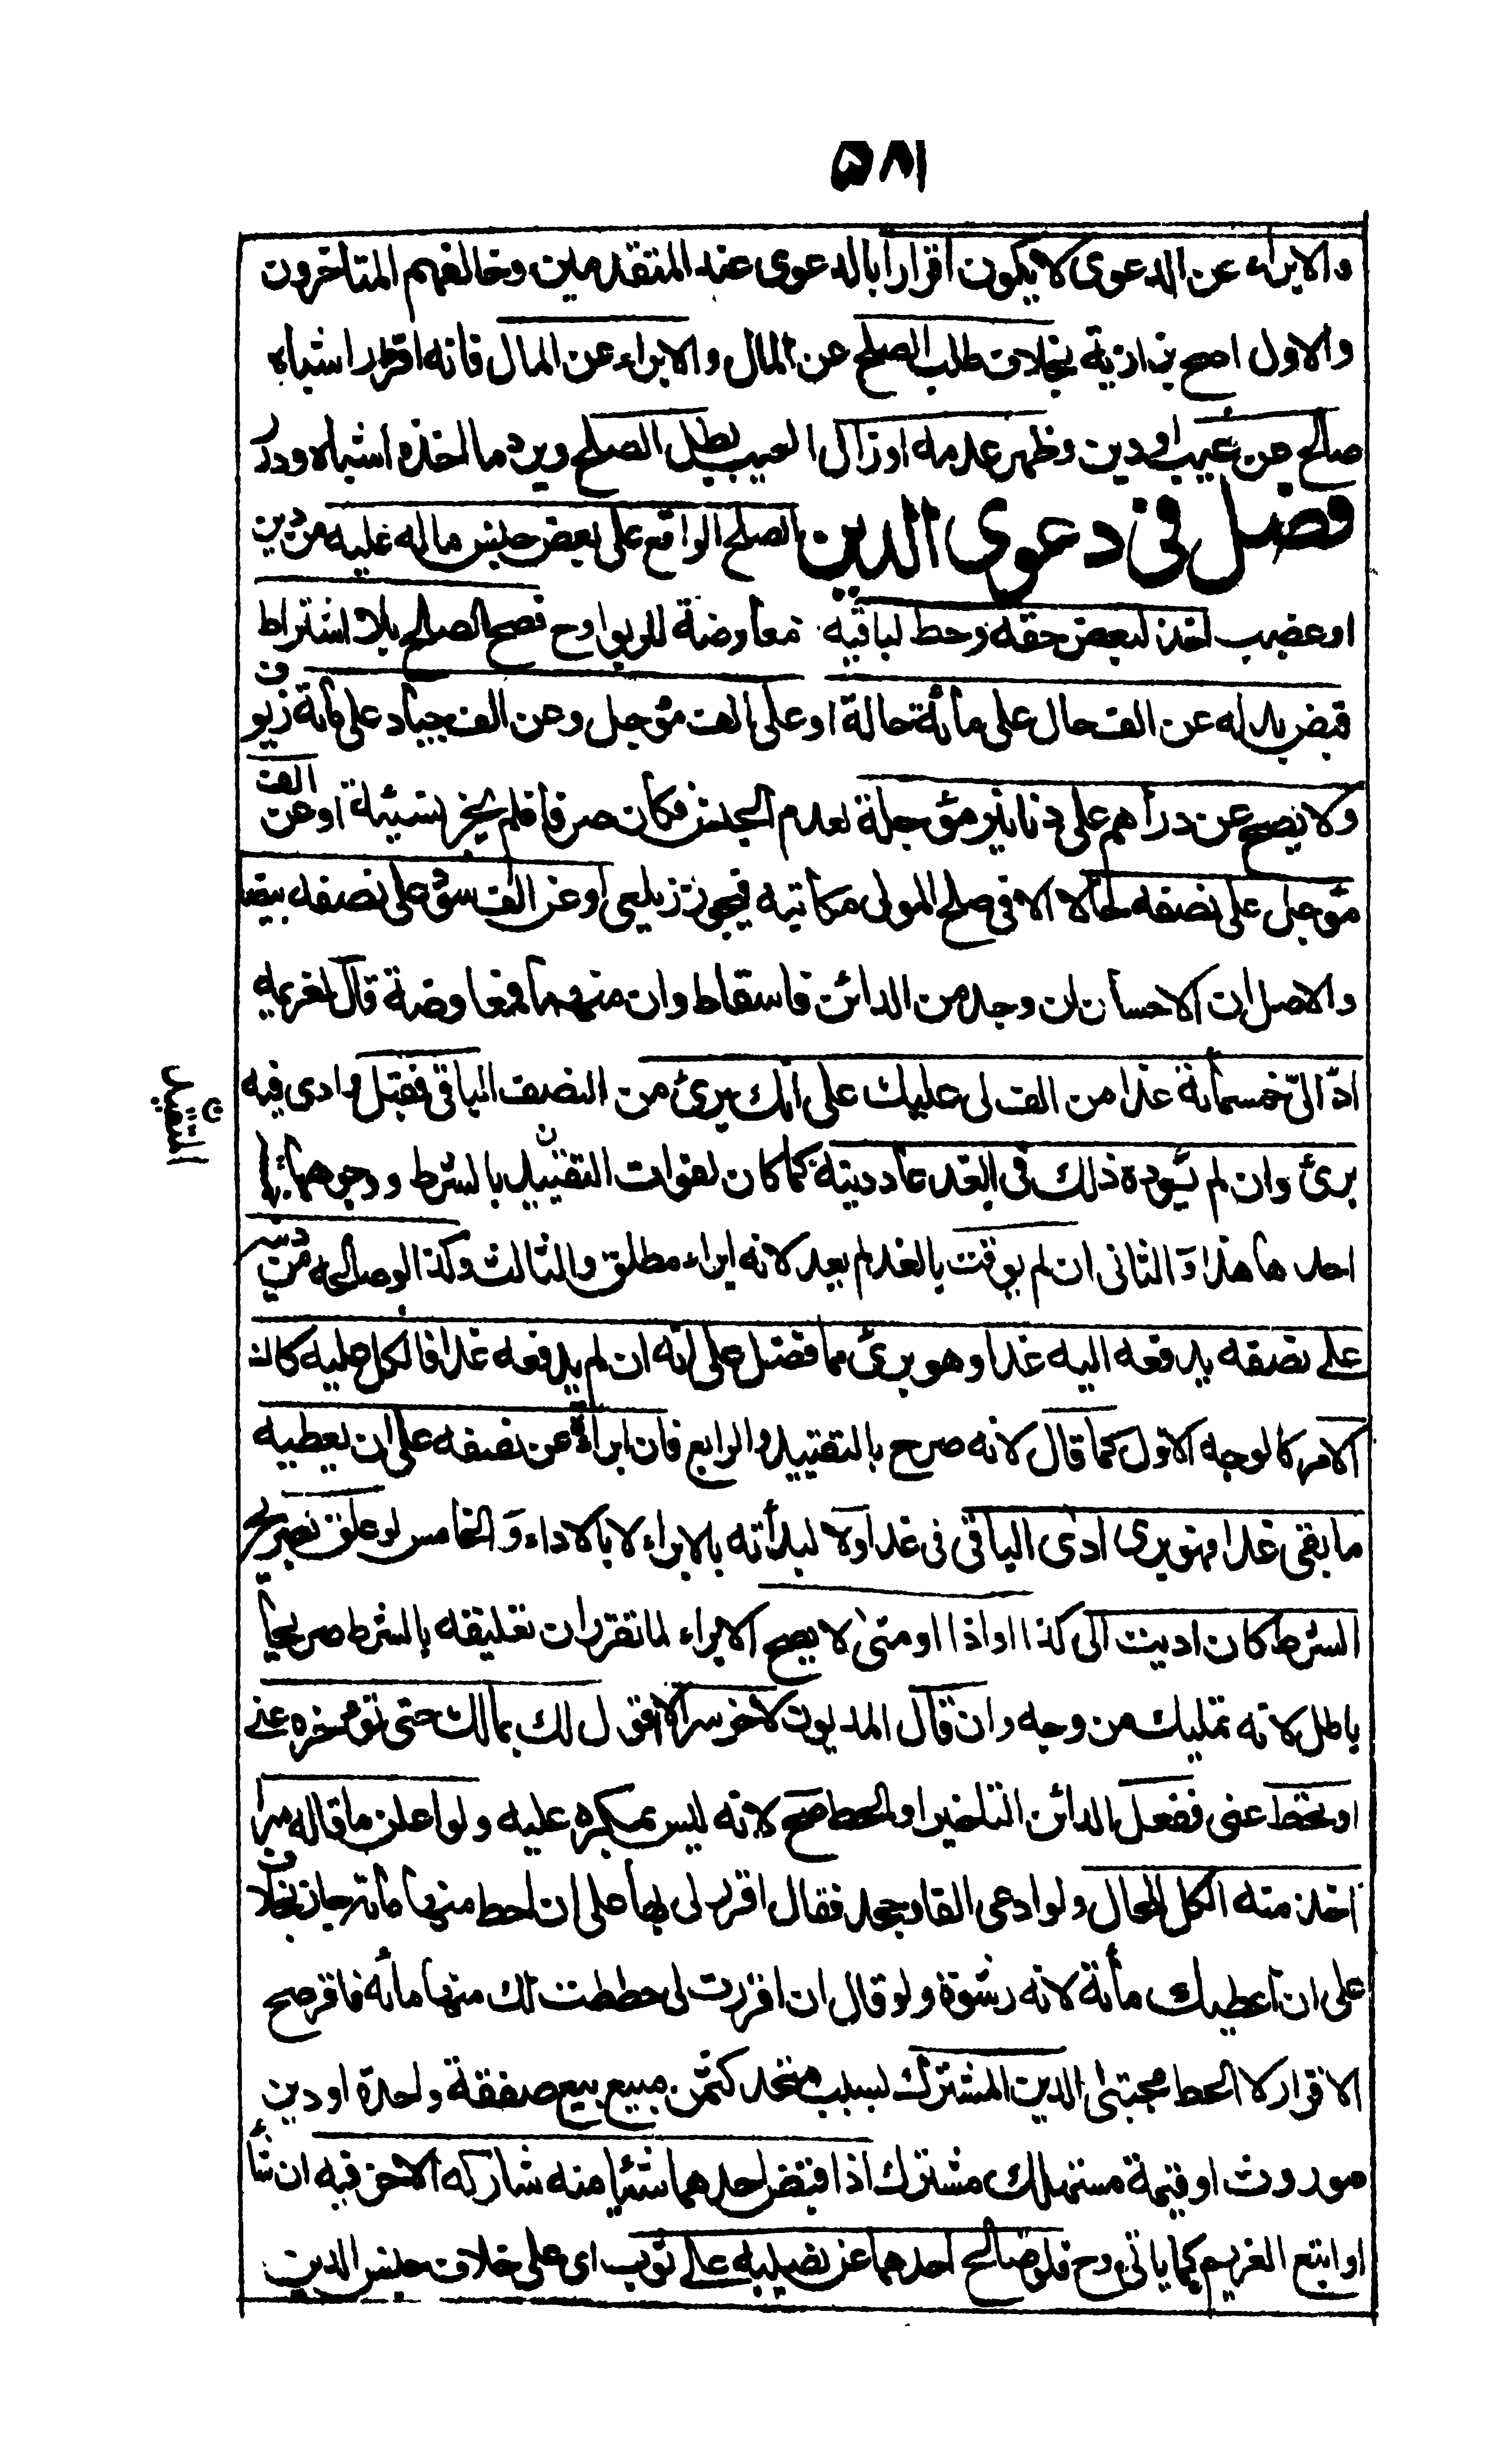 ٥٨١
والابراء عن الدعوى لا يكون اقرارا بالدعوى عند المتقدمين وخالفهم المتأخرون
والاول اصح بزازية بخلاف طلب الصلح عن المال والابراء عن المال فانه اقرار اشباه
صالح عن عيب او دين وظهر عدمه او زال العيب بطل الصلح ويرد ما اخذه اشباه ودرر
فصل فى دعوى الدين الصلح الواقع على بعض جنس ماله عليه من دين
او غصب اخذ لبعض حقه وحط لباقيه معاوضة للربوا وح فصح الصلح بلا اشتراط
قبض بدله عن الف حال على مائة حالة او على الف مؤجل وعن الف جياد على مائة زيوف
ولا يصح عن دراهم على دنانير مؤجلة لعدم الجنس فكان صرفا فلم يجز نسيئة او عن الف
مؤجل على نصفه حالا الا فى صلح المولى مكاتبه فيجوز زيلعى او عن الف سود على نصفه بيضا
والاصل ان الاحسان ان وجد من الدائن فاسقاط وان منهما فمعاوضة قال لغريمه
ادّ الىّ خمسمائة غدا من الف لى عليك على انك برئ من النصف الباقى فقبل وادى فيه
برئ وان لم يؤد ذلك فى الغد عاد دينه كما كان لفوات التقييد بالشرط ووجوهها
التقييد
احدها هذا وَ الثانى ان لم يوقت بالغد لم يعد لانه ابراء مطلق والثالث وكذا لو صالحه من دينه
على نصفه يدفعه اليه غدا وهو برئ مما فضل على انه ان لم يدفعه غدا فالكل عليه كان
الامر كالوجه الاول كما قال لانه صرح بالتقييد والرابع فان ابراءه عن نصفه على ان يعطيه
ما بقى غدا فهو برى ادى الباقى فى غد اولا لبدأته بالابراء لا بالاداء وَ الخامس لو علق بصريح
الشرط كان اديت الى كذا او اذا او متى لا يصح الابراء لما تقرر ان تعليقه بالشرط صريحا
باطل لانه تمليك من وجه وان قال المديون لاخر سرا لا اقول لك بمالك حتى تؤخره عنى
او تحط عنى ففعل الدائن التاخير او الحط صح لانه ليس بمكره عليه ولو اعلن ما قاله سرا
اخذ منه الكل للحال ولو ادعى الفا وجحد فقال اقرر لى بها على ان احط منها مائة جاز بخلاف
على ان اعطيك مائة لانه رشوة ولو قال ان اقررت لى حططت لك منها مائة فاقر صح
الاقرار لا الحط مجتبى الدين المشترك بسبب متحد كثمن مبيع بيع صفقة واحدة او دين
موروث او قيمة مستهلك مشترك اذا قبض احدهما شيئا منه شاركه الاخر فيه ان شأ
او اتبع الغريم كما ياتى وح فلو صالح احدهما عن نصيبه على ثوب اى على خلاف جنس الدين